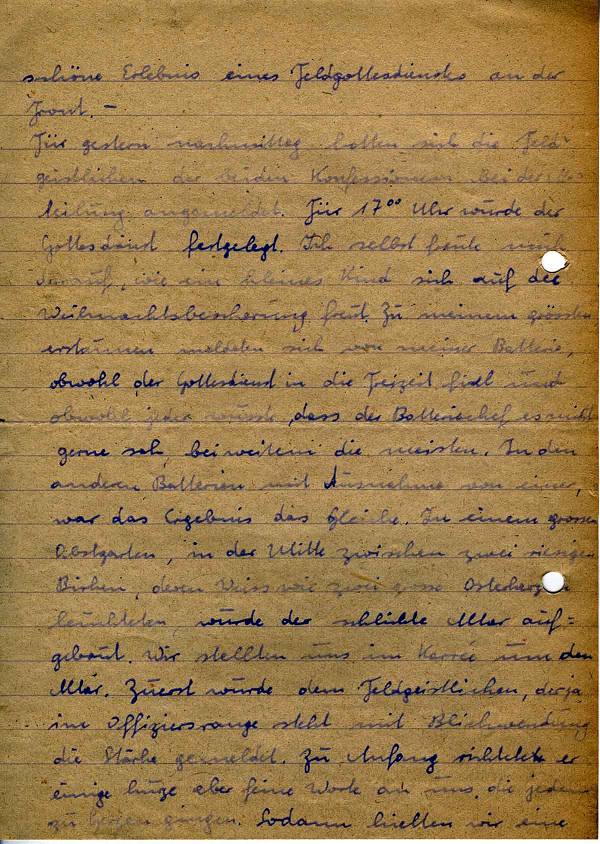 schöne Erlebnis eines Feldgottesdienstes an der
Front. -
Für gestern nachmittag hatten sich die Feld-
geistlichen der beiden Konfessionen bei der Ab-
teilung angemeldet. Für 17⁰⁰ Uhr wurde der
Gottesdienst festgelegt. Ich selbst freute mich
darauf, wie ein kleines Kind sich auf die
Weihnachtsbescherung freut. Zu meinem grössten
erstaunen meldeten sich von meiner Batterie,
obwohl der Gottesdienst in die Freizeit fiel und
obwohl jeder wusste, dass der Batteriechef es nicht
gerne sah, bei weitem die meisten. In den
anderen Batterien mit Ausnahme von einer,
war das Ergebnis das Gleiche. In einem grossen
Obstgarten, in der Mitte zwischen zwei riesigen
Birken, deren Weiss wie zwei grosse Osterkerzen
leuchteten, wurde der schlichte Altar auf=
gebaut. Wir stellten uns im Karree um den
Altar. Zuerst wurde dem Feldgeistlichen, der ja
im Offiziersrange steht mit Blickwendung
die Stärke gemeldet. Zu Anfang richtete er
einige kurze aber feine Worte an uns, die jedem
zu Herzen gingen. Sodann hielten wir eine